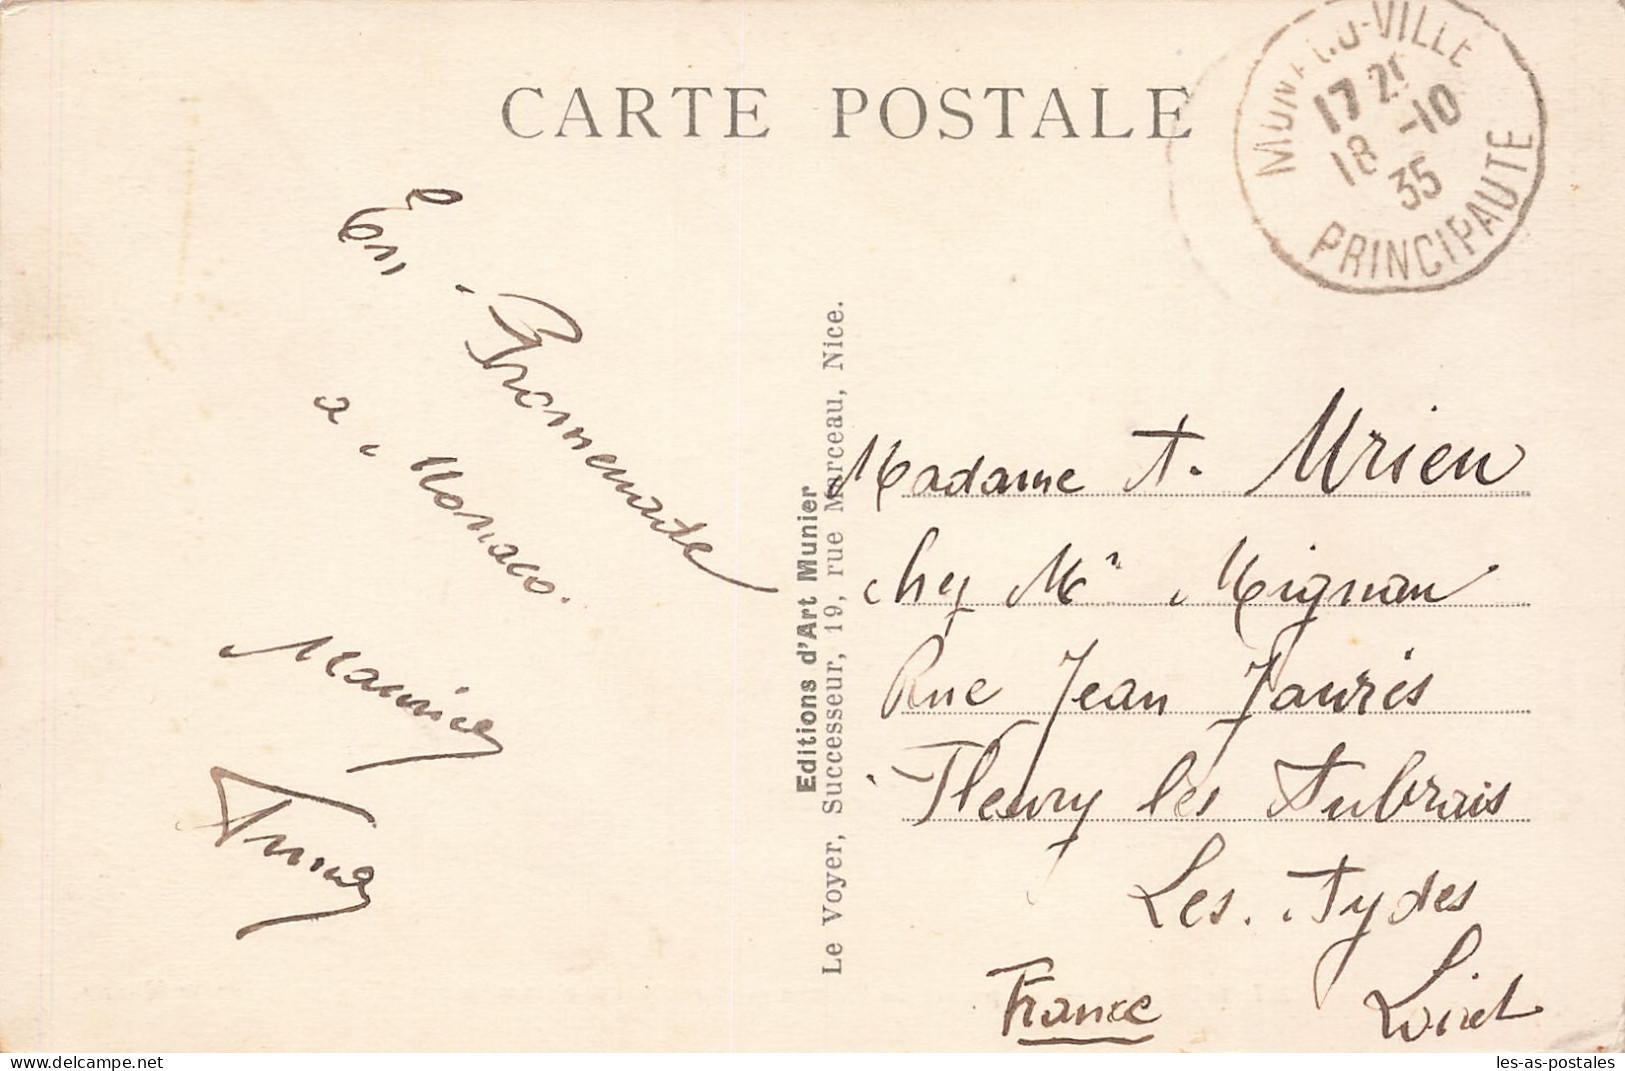 CARTE POSTALE
MONACO-VILLE
17 2
18 -10
35
PRINCIPAUTE
En Promenade
a Monaco.
Maurice
Editions d'Art Munier
Le Voyer, Successeur, 19, rue Marceau, Nice.
Madame A. Urien
chez Mr Mignan
Rue Jean Jaurès
Fleury les Aubrais
Les Aydes
France Loiret
les-as-postales